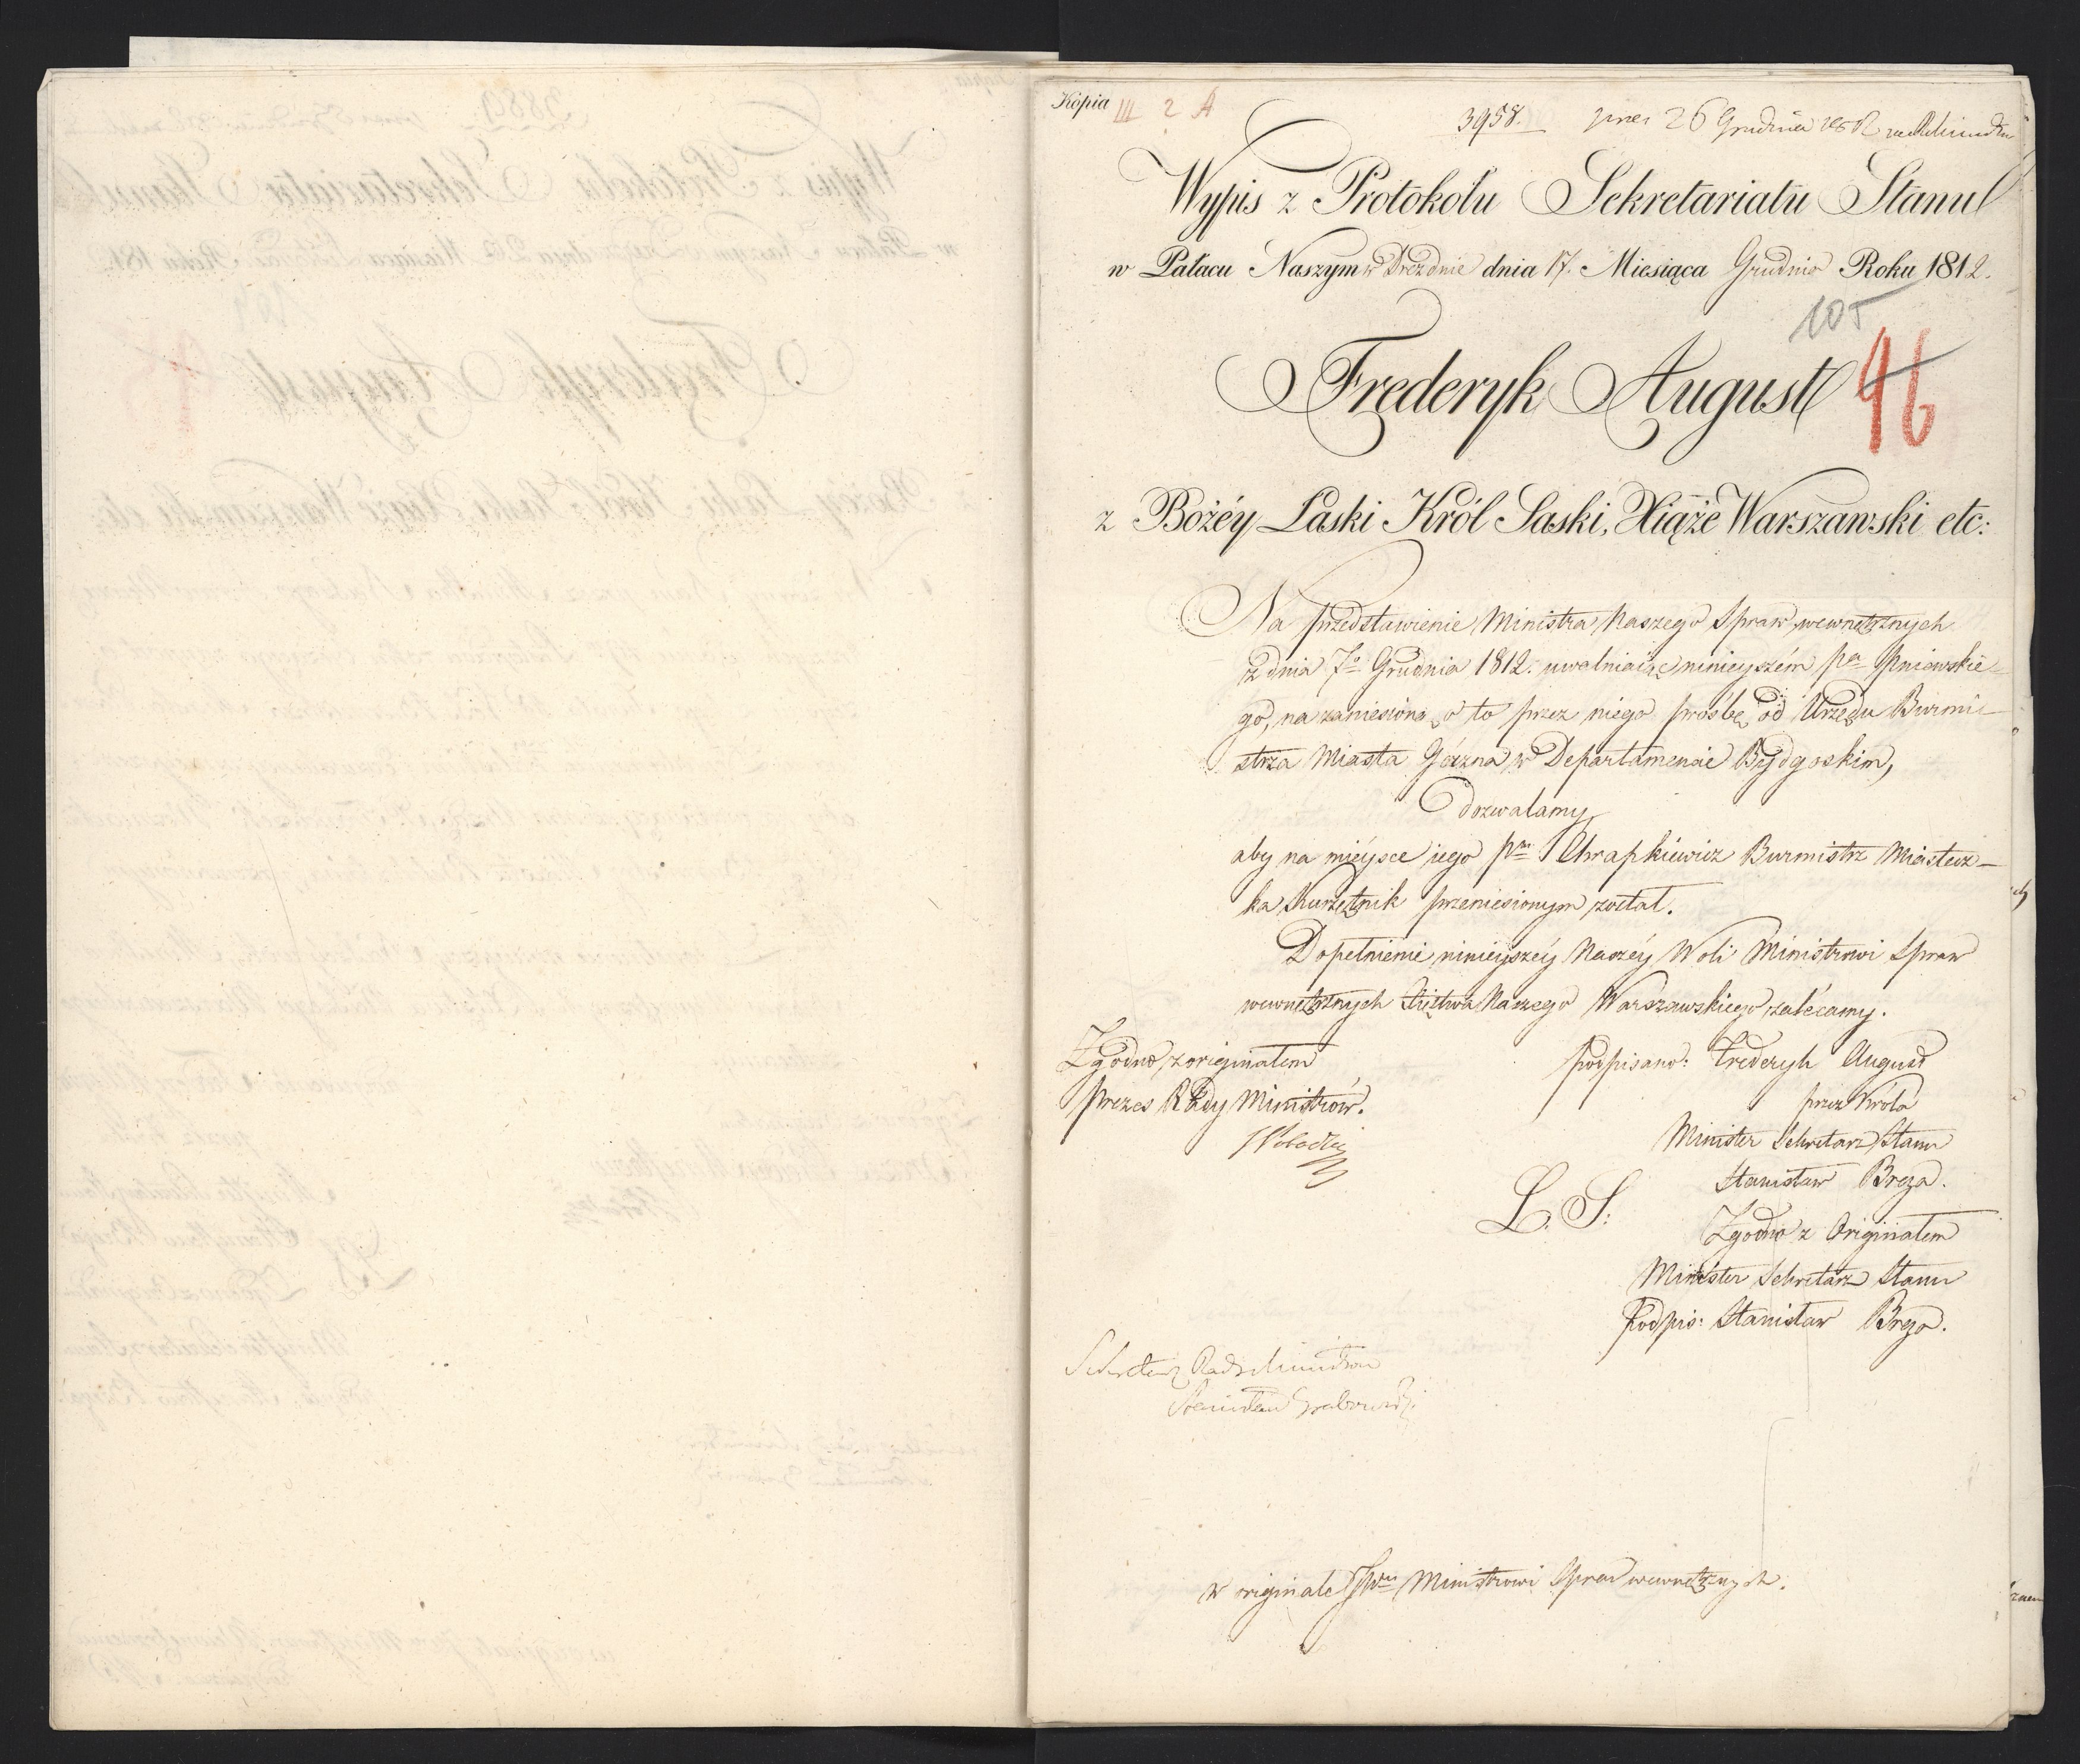 Kopia III 2 A
3958. prez 26 Grudnia
Wypis z Protokołu Sekretariatu Stanu
w Pałacu Naszym w Dreznie dnia 17. Miesiąca Grudnia Roku 1812.
105
Frederyk August 96
z Bożéy Łaski Król Saski, Xiąże Warszawski etc:
Na przedstawienie Ministra Naszego Spraw wewnętrznych
z dnia 7o Grudnia 1812. uwalniaiąc ninieyszém pa Pniewskie-
go, na zaniesioną o to przez niego prośbę od Urzędu Burmi-
strza Miasta Górzna w Departamencie Bydgoskim,
dozwalamy,
aby na mieysce iego pan Chrapkiewicz Burmistrz Miastecz-
ka Kurzętnik przeniesionym został.
Dopełnienie ninieyszéy Naszéy Woli Ministrowi Spraw
wewnętrznych Xięstwa Naszego Warszawskiego zalecamy.
Zgodno z originałem
Prezes Rady Ministrów.
podpisano: Frederyk August
przez Króla
Minister Sekretarz Stanu
Stanisław Breza.
L. S:
Zgodno z Originałem
Minister Sekretarz Stanu
Podpis: Stanisław Breza.
Sekretarz Rady Ministrów
Stanisław Grabowski
w originale JPanu Ministrowi Spraw wewnętrznych.